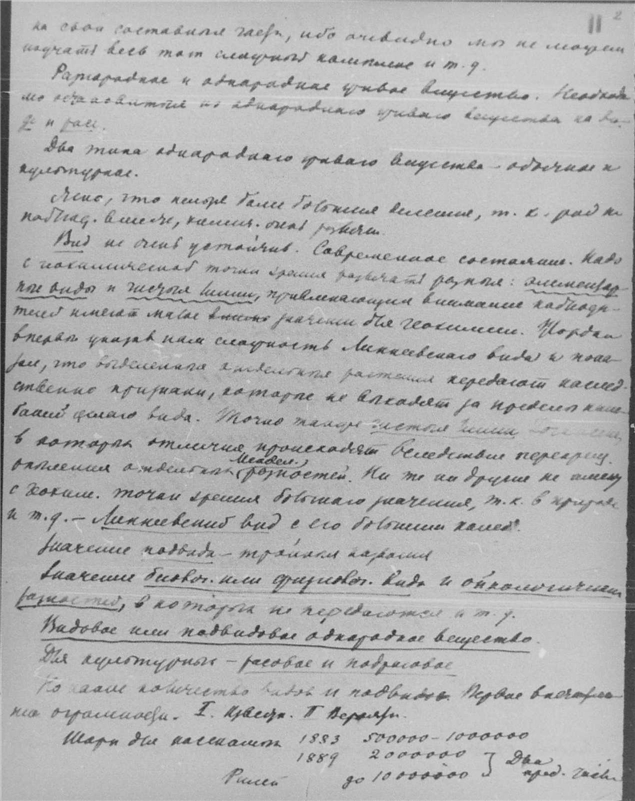 11 2
на свои составныя части, ибо очевидно мы не можем
изучать весь тот сложный комплекс и т.д.
Разнородное и однородное живое вещество. Необходи
мо остановиться на однородного живого вещества на ви-
де и рас.
Два типа однороднаго живого вещества – обычное и
культурное.
Ясно, что нельзя более большия деления, т.к. род не
наблюд. очень
Вид не очень устойчив. Современное состояние. Надо
с геохимической точки зрения различать разныя: элементар
ные виды и чистыя линии, привлекающия внимание наблюда-
телей имеют малое значение для геохимии. Жордан
впервые указал нам сложность Линнеевского вида и пока-
зал, что выделенныя отдельныя растения передают наслед
ственно признаки, которые не выходят за пределы коле-
баний целого вида. Точно также чистыя линии
в которых отличия происходят вследствие перекрещ.
опыления отдельных Мендел. разностей. Ни те ни другие не имеют
с геохим. точки зрения большого значения, т.к. в природе
и т.д. – Линнеевский вид с его большими колеб.
Значение подвида – тройныя названия
Значение биолог. или физиолог. вида и
разностей, в которых не передаются и т.д.
Видовое или подвидовое однородное вещество.
Для культурных – расовое и подрасовое
количество видов и подвидов. Первое впечатле
ние огромности. I. II
для насекомых 1883 500000 – 1000000
1889 2000000 Два
Рилей до 10000000 пред.